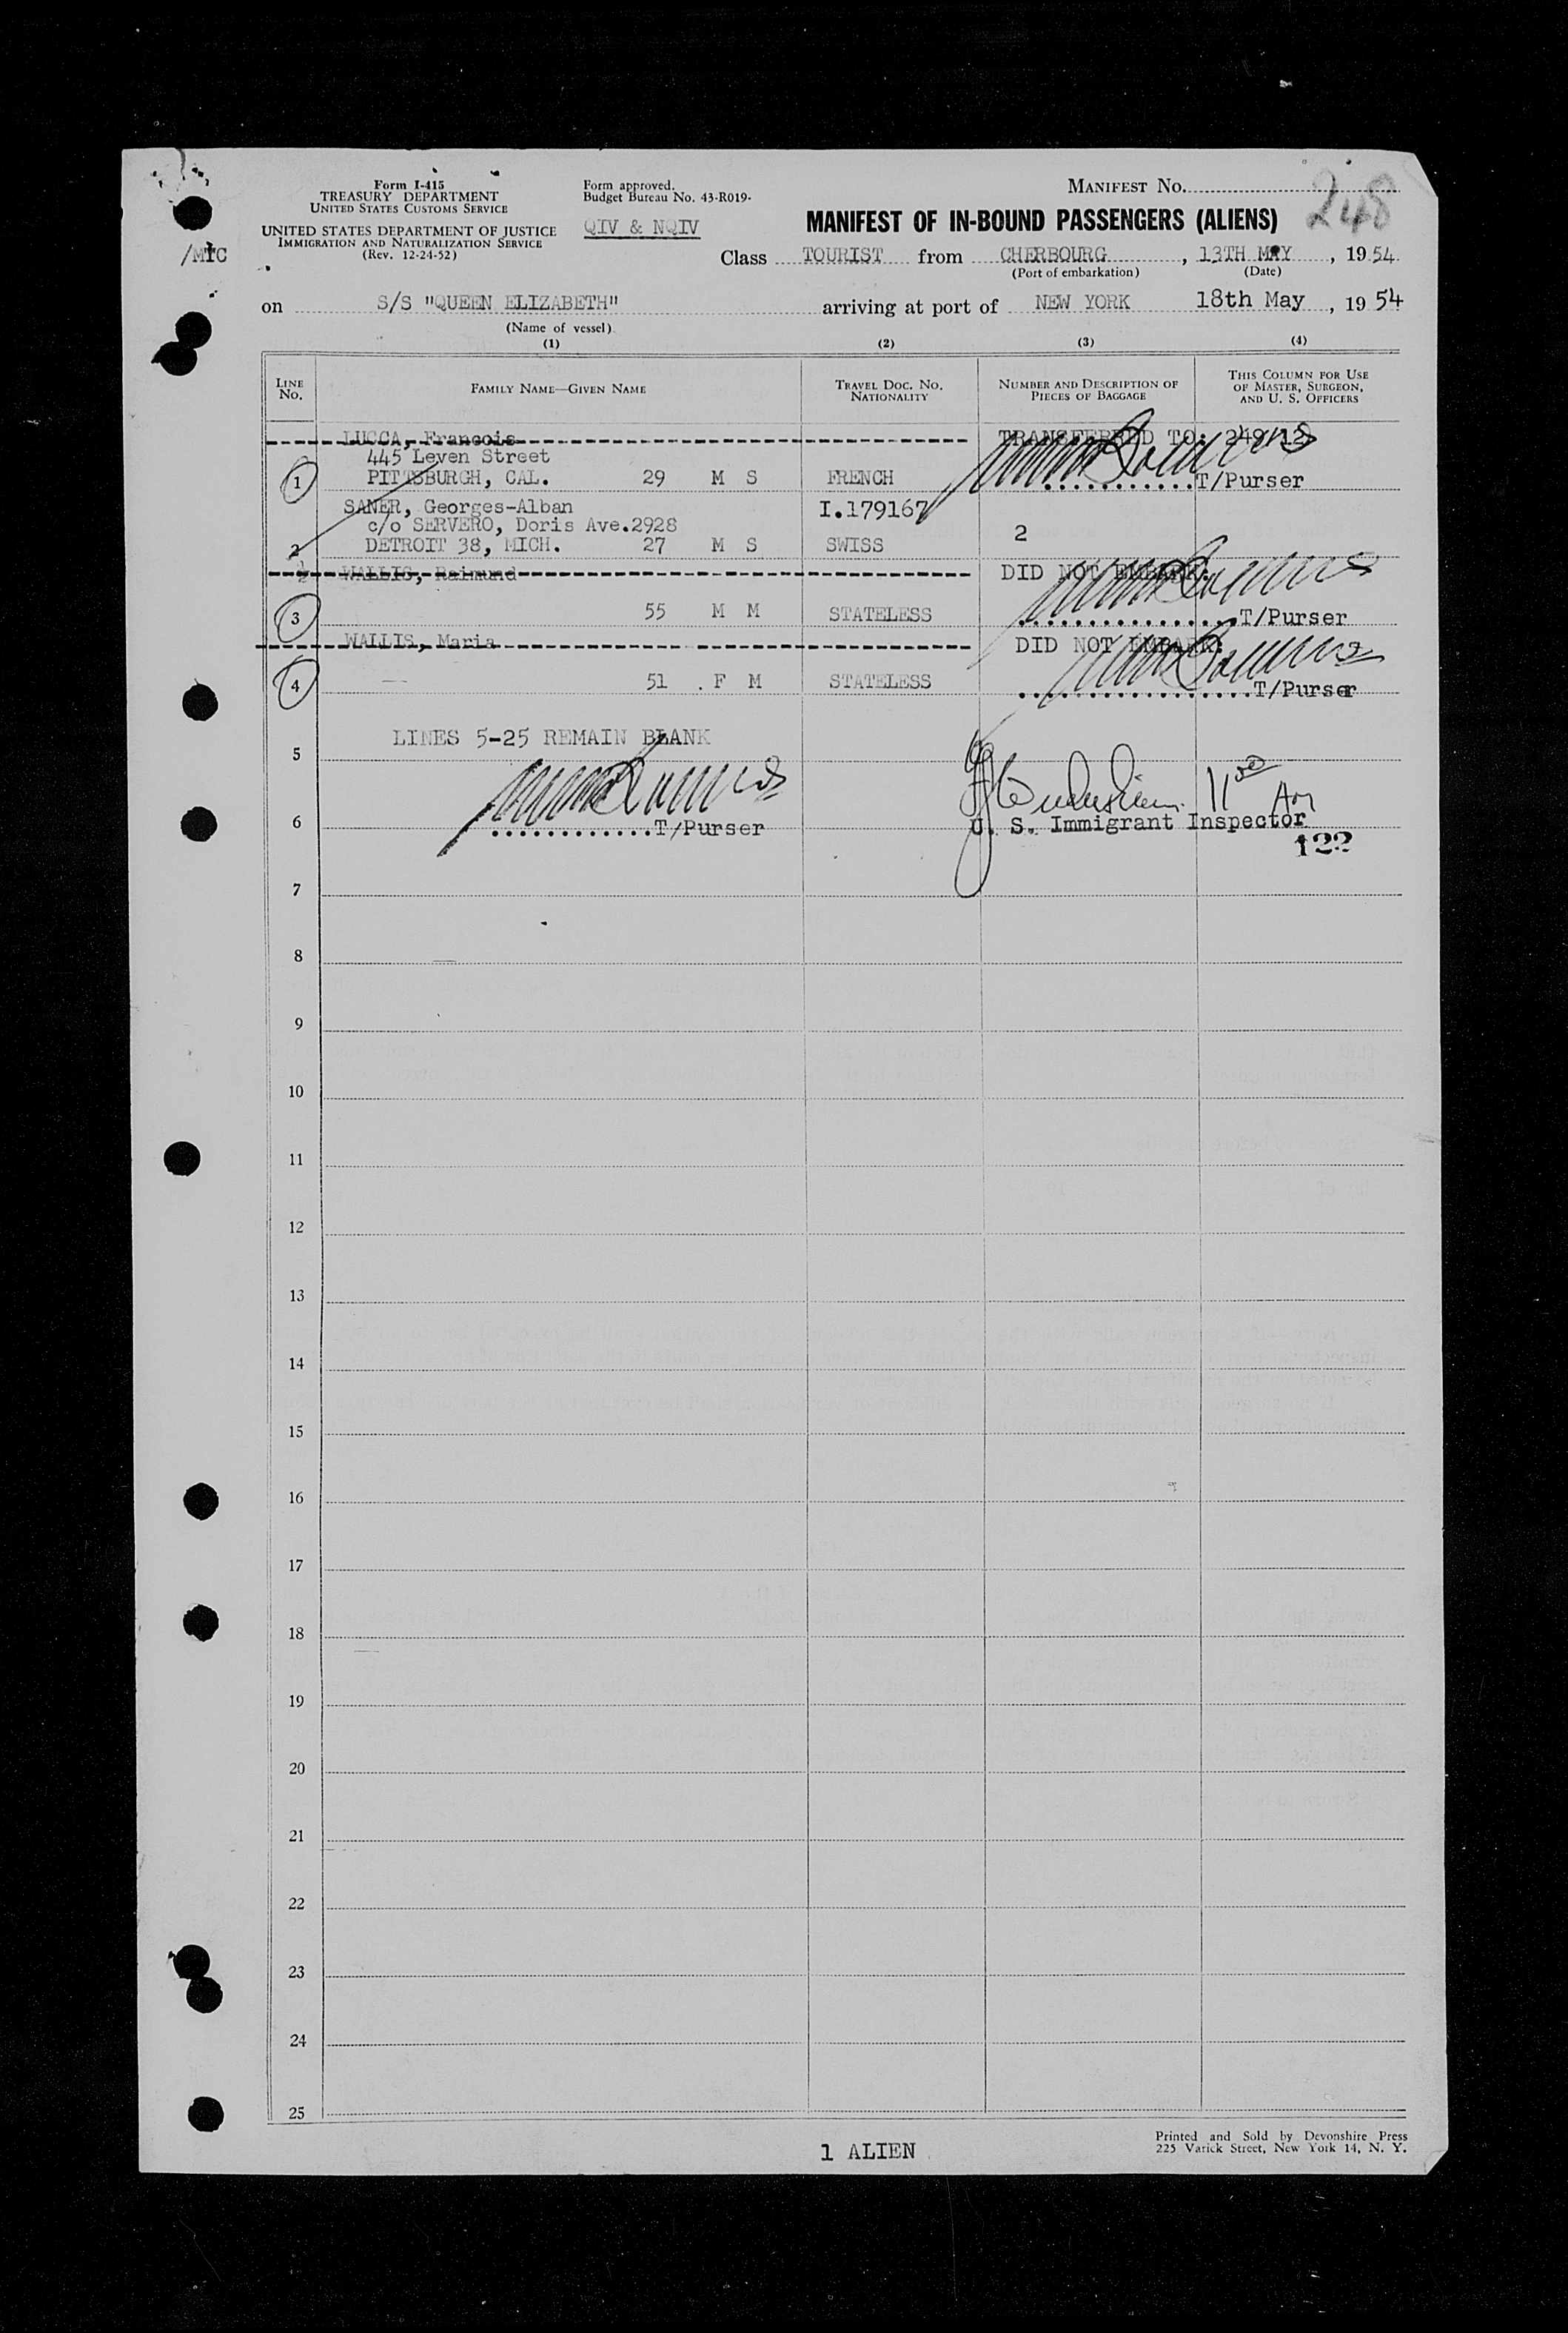 Form I-415
TREASURY DEPARTMENT
UNITED STATES CUSTOMS SERVICE
UNITED STATES DEPARTMENT OF JUSTICE
IMMIGRATION AND NATURALIZATION SERVICE
(Rev. 12-24-52)
/MTC
Form approved.
Budget Bureau No. 43-R019.
QIV & NQIV
MANIFEST No. 248
MANIFEST OF IN-BOUND PASSENGERS (ALIENS)
Class TOURIST from CHERBOURG, 13TH MAY, 1954
(Port of embarkation) (Date)
on S/S "QUEEN ELIZABETH" arriving at port of NEW YORK 18th May, 1954
(Name of vessel)
(1) (2) (3) (4)
LINE No. FAMILY NAME—GIVEN NAME TRAVEL DOC. NO. NATIONALITY NUMBER AND DESCRIPTION OF PIECES OF BAGGAGE THIS COLUMN FOR USE OF MASTER, SURGEON, AND U. S. OFFICERS
LUCCA, Francois TRANSFERRED TO: 249/12
445 Leven Street
1 PITTSBURGH, CAL. 29 M S FRENCH T/Purser
SANER, Georges-Alban I.179167
c/o SERVERO, Doris Ave.2928
2 DETROIT 38, MICH. 27 M S SWISS 2
WALLIS, Raimund DID NOT EMBARK:
3 55 M M STATELESS T/Purser
WALLIS, Maria DID NOT EMBARK:
4 51 F M STATELESS T/Purser
LINES 5-25 REMAIN BLANK
5
11 30 AM
6 T/Purser U. S. Immigrant Inspector
122
7
8
9
10
11
12
13
14
15
16
17
18
19
20
21
22
23
24
25
1 ALIEN
Printed and Sold by Devonshire Press
225 Varick Street, New York 14, N. Y.